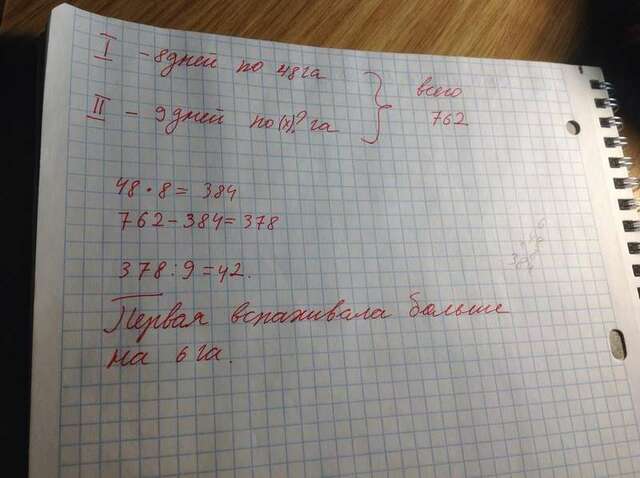 I - 8 дней по 48 га
всего
II - 9 дней по (х)? га
762
48 · 8 = 384
762 - 384 = 378
378 : 9 = 42.
Первая вспаживала больше
на 6 га.